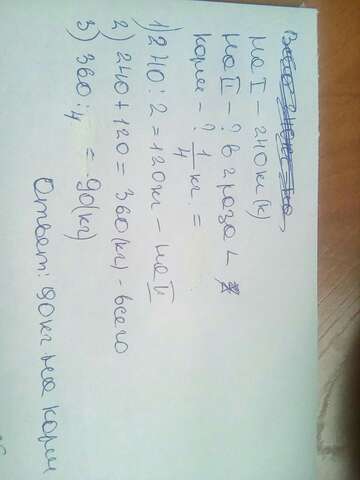 на I – 240 кг (к)
на II – ? в 2 раза <
корм – ? 1/4 кг. =
1) 240 : 2 = 120 кг – на II
2) 240 + 120 = 360 (кг) – всего
3) 360 : 4 = 90 (кг)
Ответ: 90 кг на корм